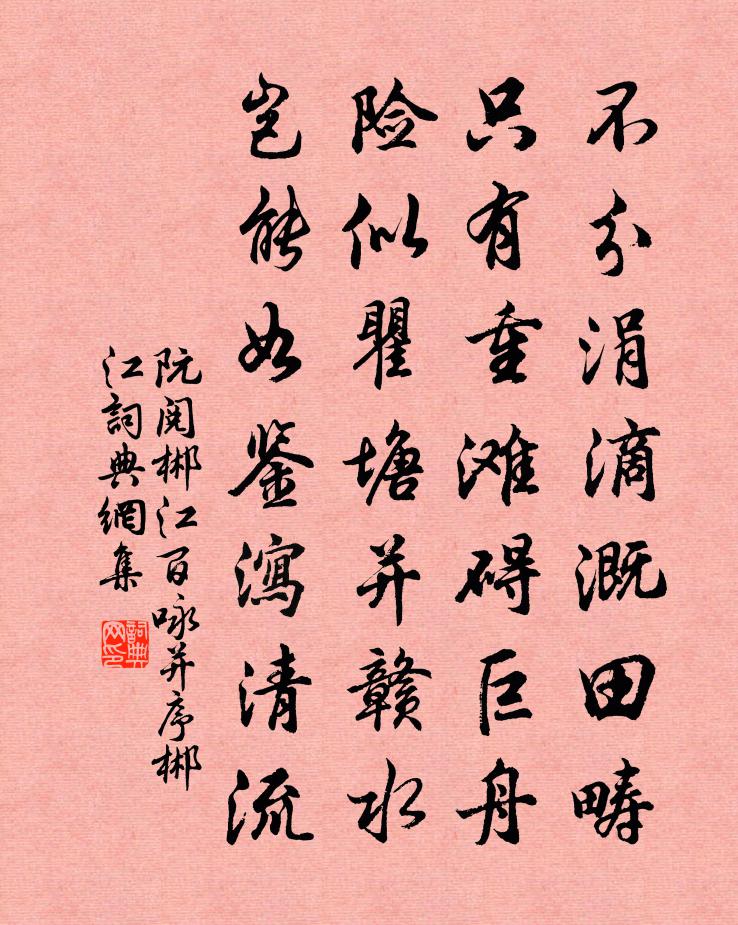 不分涓滴溉田畴
只有重滩碍巨舟
险似瞿塘并赣水
岂能如鉴泻清流
阮阅郴江百咏并序郴
江詞典網集
詞典网印